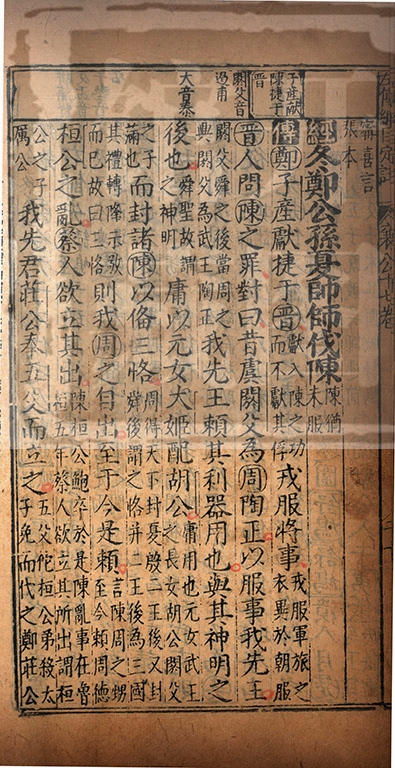 甯喜言
張本
經冬鄭公孫夏帥師伐陳陳猶未服
子產獻
陳捷于
晉
傳鄭子產獻捷于晉獻入陳之功而不獻其俘戎服將事戎服軍旅之衣異於朝服
閼父音
遏甫
晉人問陳之罪對曰昔虞閼父為周陶正以服事我先王
閼父舜之後當周之興閼父為武王陶正我先王賴其利器用也與其神明之
大音泰
後也舜聖故謂之神明庸以元女大姬配胡公庸用也元女武王之長女胡公閼父
之子滿也而封諸陳以備三恪周得天下封夏殷二王後又封舜後謂之恪并二王後為三國
其禮轉降示敬而已故曰三恪則我周之自出至于今是賴言陳周之甥至今賴周德
桓公之亂蔡人欲立其出陳桓公鮑卒於是陳亂事在魯桓五年蔡人欲立其所出謂桓
公之子厲公我先君莊公奉五父而立之五父佗桓公弟殺太子免而代之鄭莊公